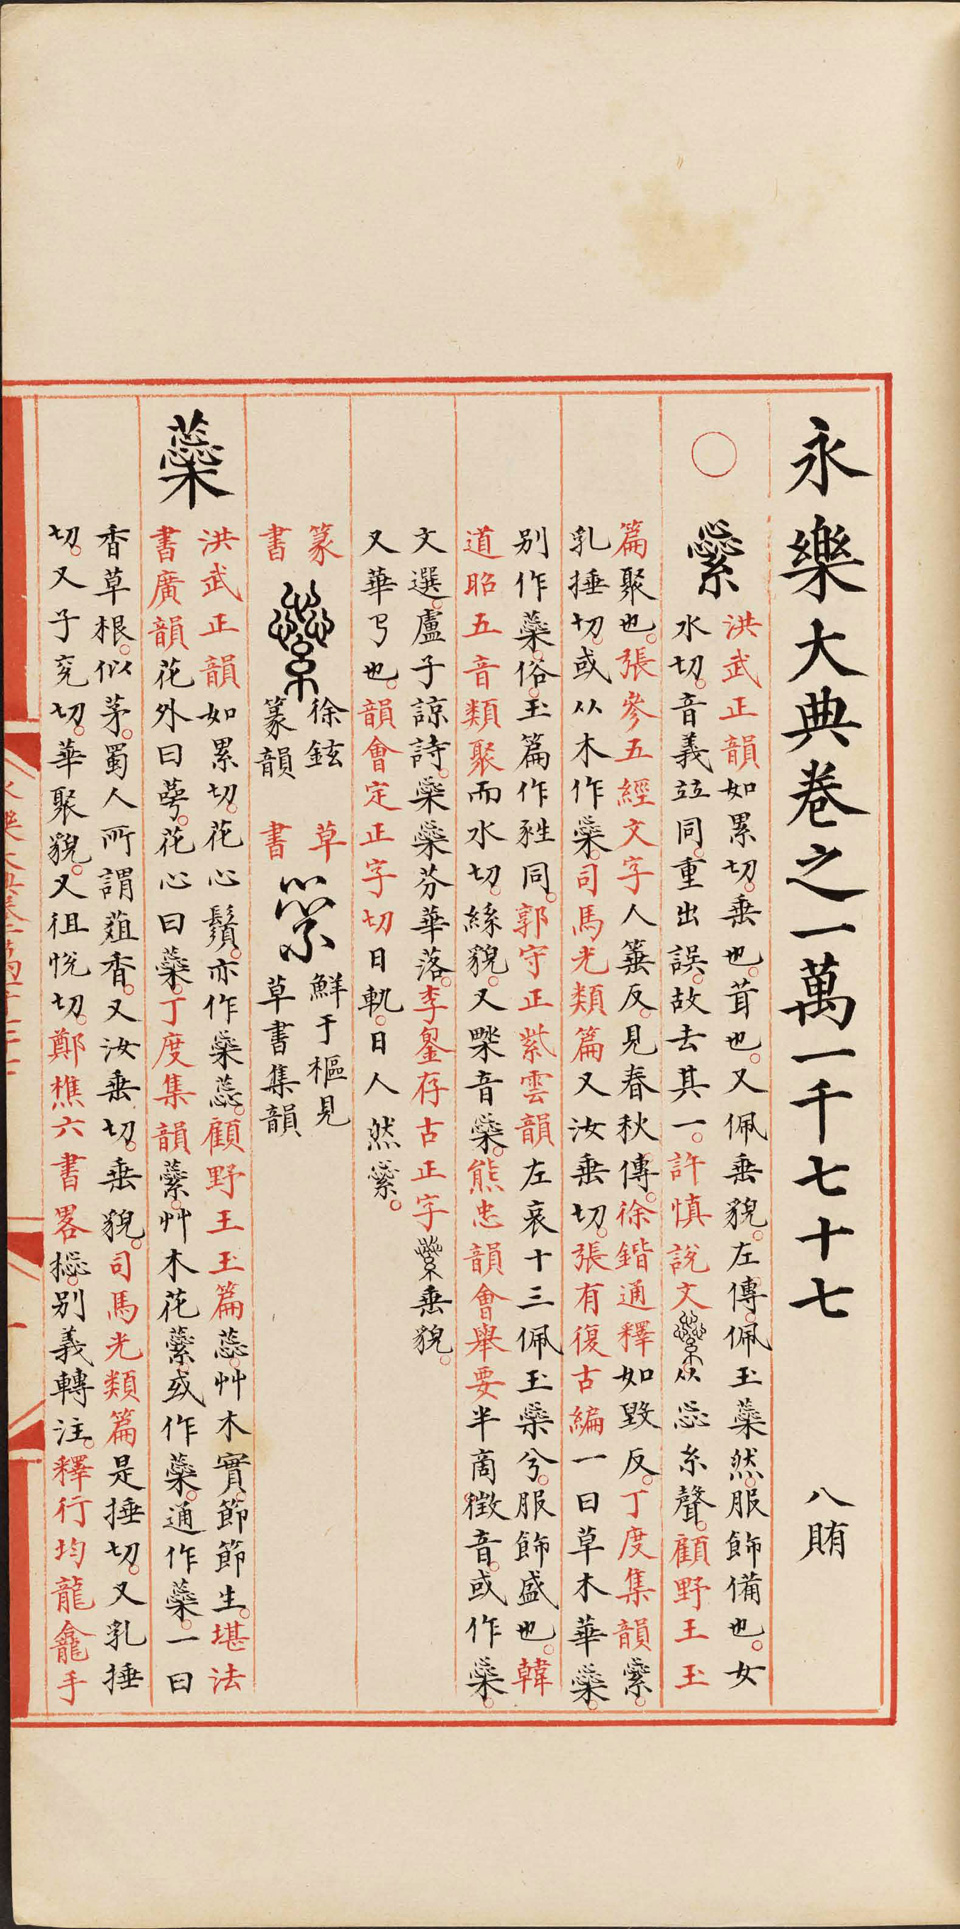 永樂大典卷之一萬一千七十七　八賄
○繠
洪武正韻如累切。垂也。茸也。又佩垂貌。左傳。佩玉蘂然。服飾備也。女
水切。音義竝同。重出誤。故去其一。許慎說文繠从惢糸聲。顧野王玉
篇聚也。張參五經文字人箠反。見春秋傳。徐鍇通釋如毀反。丁度集韻繠。
乳捶切。或从木作橤。司馬光類篇又汝垂切。張有復古編一曰草木華橤。
別作蘂。俗。玉篇作甤同。郭守正紫雲韻左哀十三佩玉橤兮。服飾盛也。韓
道昭五音類聚而水切。緣貌。又檠音橤。熊忠韻會舉要半商徵音。或作橤。
文選。盧子諒詩。橤橤芬華落。李鋆存古正字繠垂貌。
又華弓也。韻會定正字切日軌。日人然繠。
篆書
繠
徐鉉篆韻
草書
繠
鮮于樞見草書集韻
蘂
洪武正韻如累切。花心鬚。亦作橤蕊。顧野王玉篇蕊。艸木實。節節生。堪法
書廣韻花外曰萼。花心曰蘂。丁度集韻蘂。艸木花蘂。或作蘂。通作橤。一曰
香草根。似茅。蜀人所謂葅香。又汝垂切。垂貌。司馬光類篇是捶切。又乳捶
切。又子兗切。華聚貌。又徂悅切。鄭樵六書畧惢。別義轉注。釋行均龍龕手